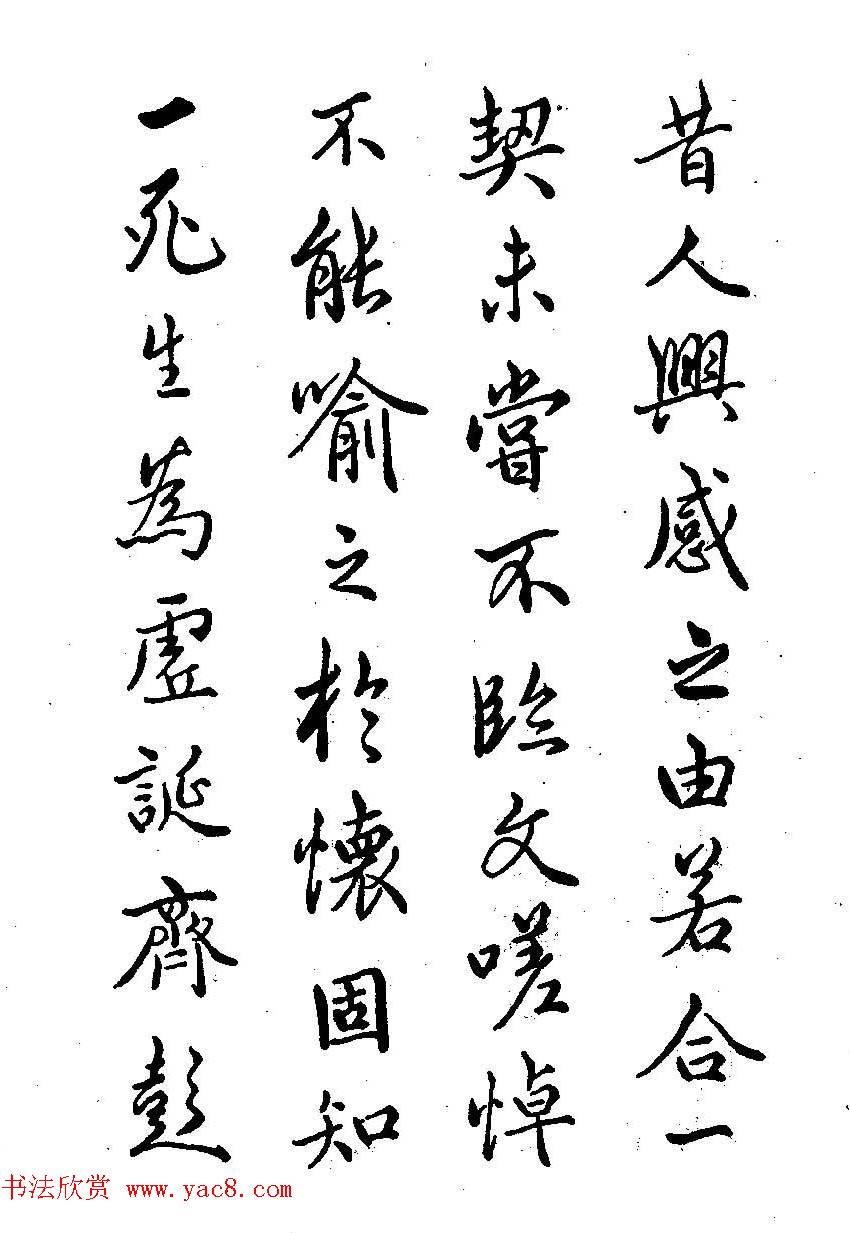 昔人興感之由若合一
契未嘗不臨文嗟悼
不能喻之於懷固知
一死生為虛誕齊彭
书法欣赏 www.yac8.com